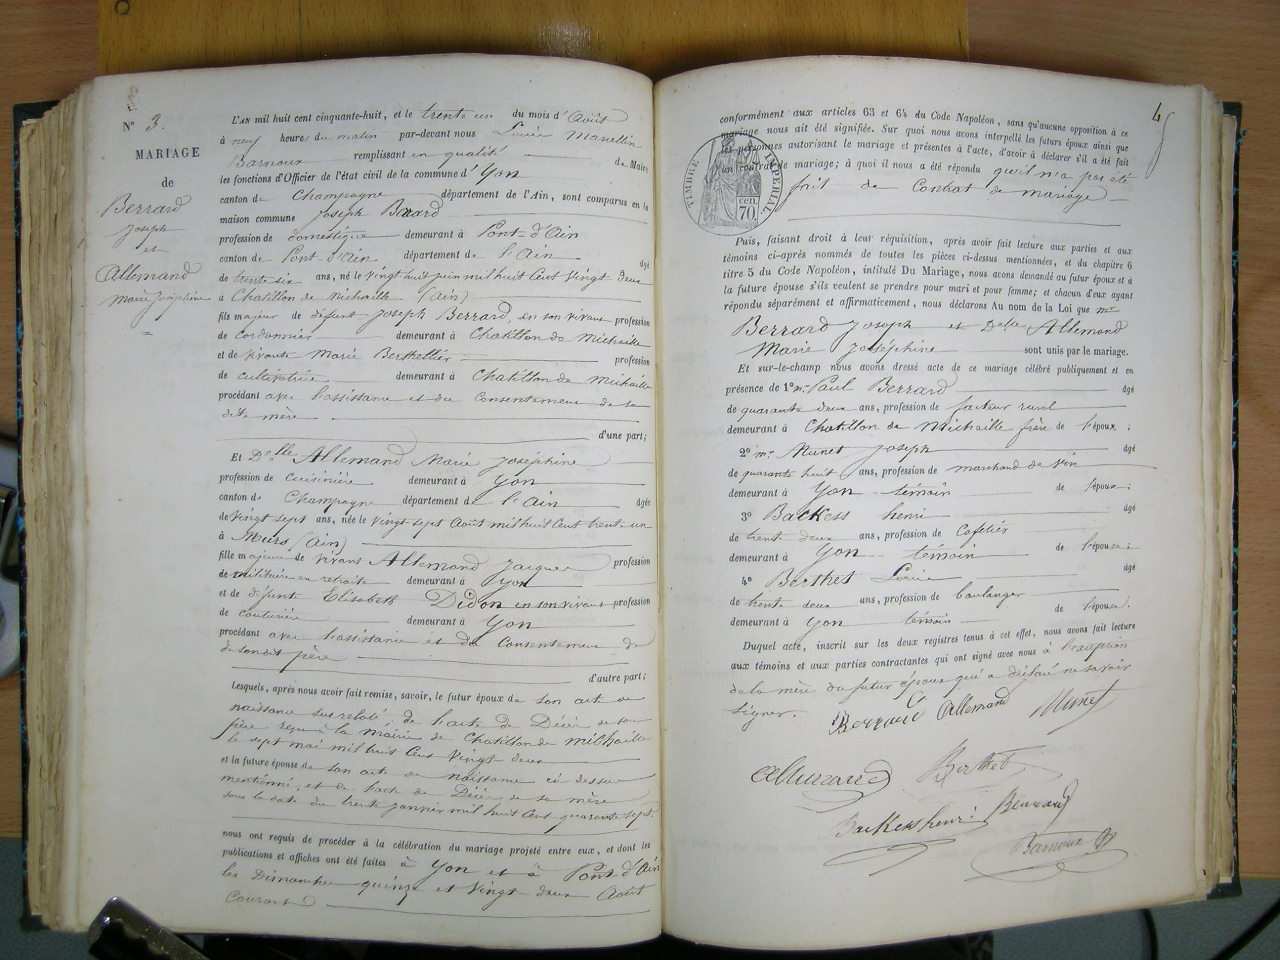 N° 3.
MARIAGE
de
Berrard
Joseph
et
Allemand
Marie Joséphine
L'AN mil huit cent cinquante-huit, et le trente un du mois d'Août
à neuf heures du matin par-devant nous Marcellin
Barnoux remplissant en qualité de Maire
les fonctions d'Officier de l'état civil de la commune d'Yon
canton de Champagne département de l'Ain, sont comparus en la
maison commune Joseph Berrard
profession de domestique demeurant à Pont-d'Ain
canton de Pont d'Ain département de l'Ain âgé
de trente six ans, né le vingt huit juin mil huit cent vingt deux
à Chatillon de Michaille (Ain)
fils majeur de défunt Joseph Berrard, en son vivant profession
de cordonnier demeurant à Chatillon de Michaille
et de vivante Marie Berthellier profession
de cultivatrice demeurant à Chatillon de Michaille
procédant avec l'assistance et du consentement de sa
dite mère
d'une part;
Et Delle Allemand Marie Joséphine
profession de cuisinière demeurant à Yon
canton de Champagne département de l'Ain âgée
de vingt sept ans, née le vingt sept Août mil huit cent trente un
à (Ain)
fille majeure de vivant Allemand Jacques profession
de militaire en retraite demeurant à Yon
et de défunte Elisabeth Didon en son vivant profession
de couturière demeurant à Yon
procédant avec l'assistance et du consentement de
son père
d'autre part;
Lesquels, après nous avoir fait remise, savoir, le futur époux de son acte de
naissance sus relaté, de l'acte de Décès de son
père reçu à la mairie de Chatillon de Michaille
le sept mai mil huit cent vingt deux
et la future épouse de son acte de naissance ci dessus
mentionné, et de l'acte de Décès de sa mère
sous la date du trente janvier mil huit cent quarante sept
nous ont requis de procéder à la célébration du mariage projeté entre eux, et dont les
publications et affiches ont été faites à Yon et à Pont-d'Ain
les Dimanches quinze et vingt deux Août
Courant
4
conformément aux articles 63 et 64 du Code Napoléon, sans qu'aucune opposition à ce
mariage nous ait été signifiée. Sur quoi nous avons interpellé les futurs époux ainsi que
les personnes autorisant le mariage et présentes à l'acte, d'avoir à déclarer s'il a été fait
un contrat de mariage; à quoi il nous a été répondu qu'il n'a pas été
fait de Contrat de mariage
TIMBRE IMPÉRIAL
cen.
70.
Puis, faisant droit à leur réquisition, après avoir fait lecture aux parties et aux
témoins ci-après nommés de toutes les pièces ci-dessus mentionnées, et du chapitre 6
titre 5 du Code Napoléon, intitulé Du Mariage, nous avons demandé au futur époux et à
la future épouse s'ils veulent se prendre pour mari et pour femme; et chacun d'eux ayant
répondu séparément et affirmativement, nous déclarons Au nom de la Loi que mr
Berrard Joseph et Delle Allemand
Marie Joséphine sont unis par le mariage.
Et sur-le-champ nous avons dressé acte de ce mariage célébré publiquement et en
présence de 1° mr Paul Berrard âgé
de quarante deux ans, profession de facteur rural
demeurant à Chatillon de Michaille frère de l'époux;
2° mr Munet Joseph âgé
de quarante huit ans, profession de marchand de vin
demeurant à Yon témoin de l'époux;
3° Backess henri âgé
de trente deux ans, profession de Cafetier
demeurant à Yon témoin de l'épouse;
4° Berthet âgé
de trente deux ans, profession de boulanger
demeurant à Yon témoin de l'épouse.
Duquel acte, inscrit sur les deux registres tenus à cet effet, nous avons fait lecture
aux témoins et aux parties contractantes qui ont signé avec nous à l'exception
de la mère du futur époux qui a déclaré ne savoir
signer.
Berrard Allemand Munet
Allemand Berthet
Backess henri Berrard
Barnoux